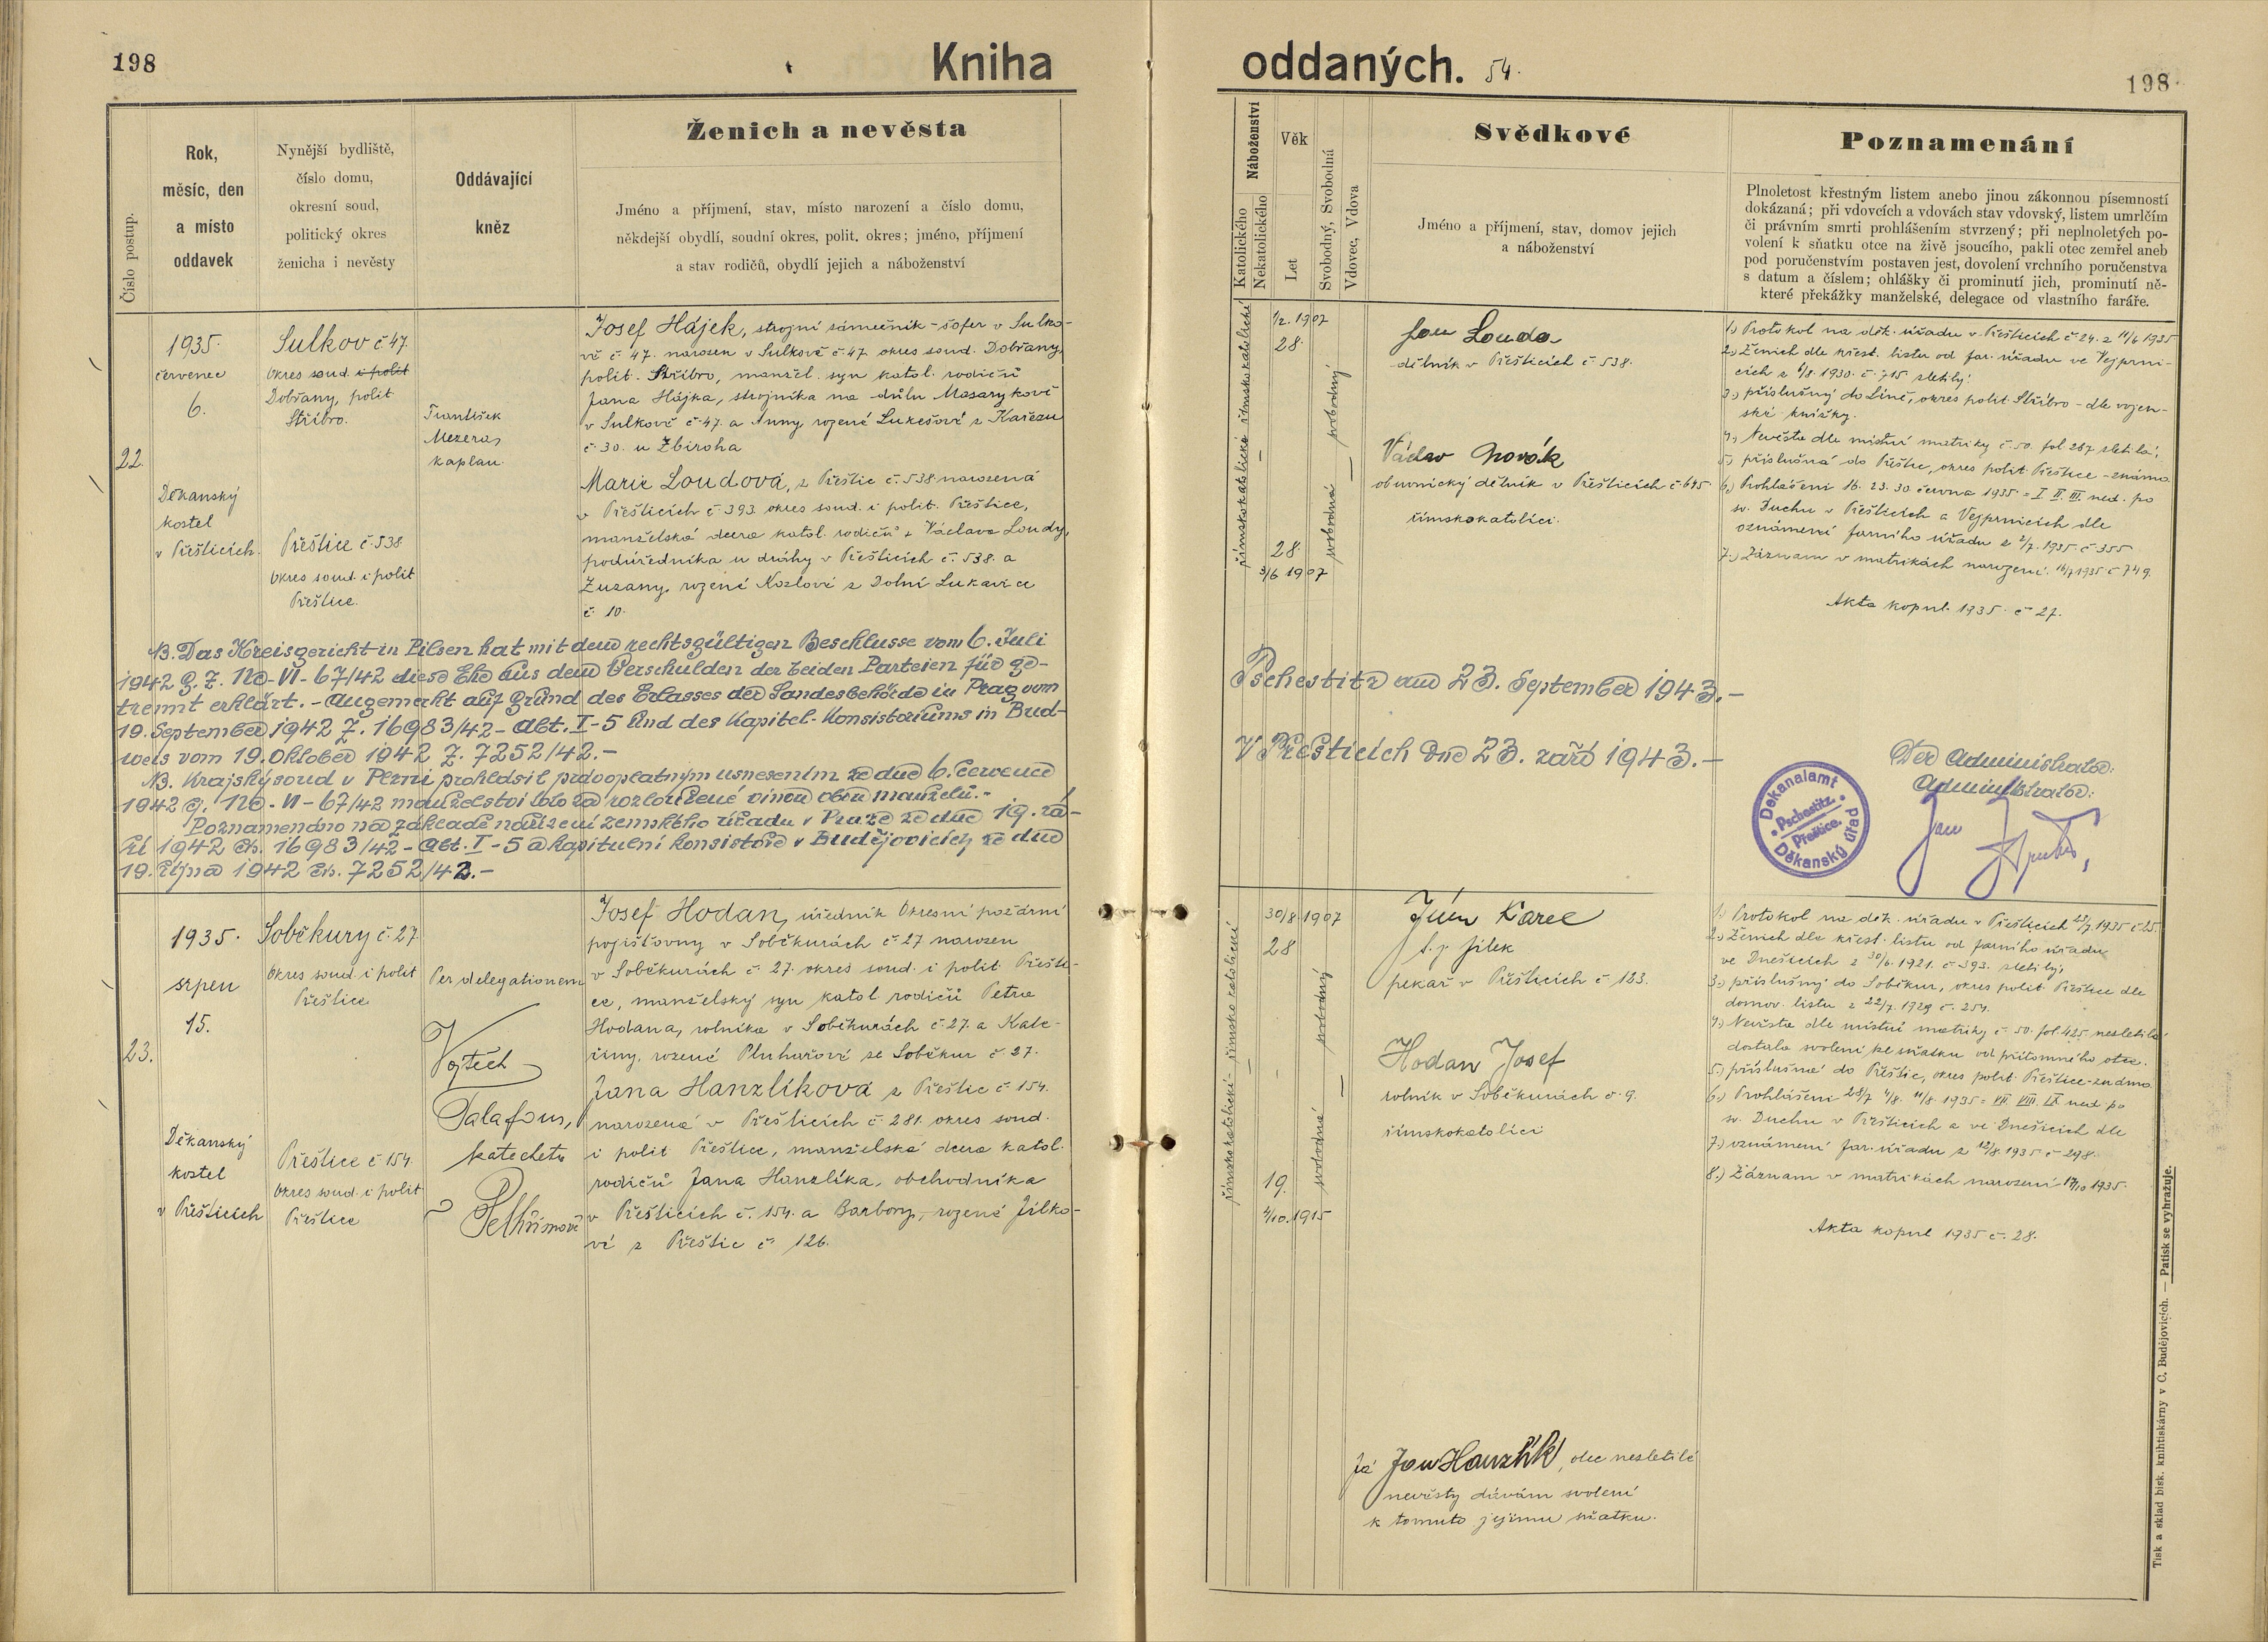 198
Kniha
Číslo postup.
Rok,
měsíc, den
a místo
oddavek
Nynější bydliště,
číslo domu,
okresní soud,
politický okres
ženicha i nevěsty
Oddávající
kněz
Ženich a nevěsta
Jméno a příjmení, stav, místo narození a číslo domu,
někdejší obydlí, soudní okres, polit. okres; jméno, příjmení
a stav rodičů, obydlí jejich a náboženství
22.
1935.
červenec
6.
Děkanský
kostel
v Přešticích.
Sulkov č 47.
okres soud. i polit
Dobřany, polit.
Stříbro.
Přeštice č. 538
okres soud. i polit
Přeštice.
František
Mezera,
kaplan.
Josef Hájek, strojní zámečník - šofer v Sulko-
vě č. 47. narozen v Sulkově č. 47. okres soud. Dobřany,
polit. Stříbro, manžel. syn katol. rodičů
Jana Hájka, strojníka na dolu Masarykově
v Sulkově č. 47. a Anny rozené Lukešové z Kařezu
č. 30. u Zbiroha
Marie Loudová, z Přeštic č. 538 narozená
v Přešticích č. 393. okres soud. i polit. Přeštice,
manželská dcera katol. rodičů Václava Loudy,
podúředníka u dráhy v Přešticích č. 538. a
Zuzany, rozené Kozlové z Dolní Lukavice
č. 10.
NB. Das Kreisgericht in Pilsen hat mit dem rechtsgültigen Beschlusse vom 6. Juli
1942 G. Z. Nc-VI-67/42 diese Ehe aus dem Verschulden der beiden Parteien für ge-
trennt erklärt. - Angemerkt auf Grund des Erlasses der Landesbehörde in Prag vom
19. September 1942 Z. 16983/42 - Abt. I-5 und des Kapitel-Konsistoriums in Bud-
weis vom 19. Oktober 1942 Z. 7252/42.-
NB. Krajský soud v Plzni prohlásil právoplatným usnesením ze dne 6. července
1942 Nc-VI-67/42 manželství toto za rozloučené vinou obou manželů.-
Poznamenáno na základě nařízení zemského úřadu v Praze ze dne 19. zá-
ří 1942 čís. 16983/42 - Abt. I-5 a kapitulní konsistoře v Budějovicích ze dne
19. října 1942 čís. 7252/42.-
23.
1935.
srpen
15.
Děkanský
kostel
v Přešticích
Soběkury č. 27.
okres soud i polit
Přeštice
Přeštice č 154.
okres soud. i polit
Přeštice
Per delegationem
Vojtěch
Talafous,
katecheta
v Pelhřimově
Josef Hodan, úředník Okresní požární
pojišťovny v Soběkurách č. 27 narozen
v Soběkurách č. 27. okres soud. i polit Přešti-
ce, manželský syn katol. rodičů Petra
Hodana, rolníka v Soběkurách č. 27. a Kate-
řiny, rozené Pluhařové ze Soběkur č. 27.
Jana Hanzlíková z Přeštic č. 154.
narozená v Přešticích č. 281. okres soud.
i polit Přeštice, manželská dcera katol.
rodičů Jana Hanzlíka, obchodníka
v Přešticích č. 154. a Barbory, rozené Jílko-
vé z Přeštic č. 126.
oddaných. 54.
198.
Náboženství
Katolického
Nekatolického
Věk
Let
Svobodný, Svobodná
Vdovec, Vdova
Svědkové
Jméno a příjmení, stav, domov jejich
a náboženství
Poznamenání
Plnoletost křestným listem anebo jinou zákonnou písemností
dokázaná; při vdovcích a vdovách stav vdovský, listem umrlčím
či právním smrti prohlášením stvrzený; při neplnoletých po-
volení k sňatku otce na živě jsoucího, pakli otec zemřel aneb
pod poručenstvím postaven jest, dovolení vrchního poručenstva
s datum a číslem; ohlášky či prominutí jich, prominutí ně-
které překážky manželské, delegace od vlastního faráře.
římskokatolické římskokatolické
1/2. 1907
28.
28.
3/6 1907
svobodná — svobodný
Jan Louda
dělník v Přešticích č 538.
Václav Novák
obuvnický dělník v Přešticích č 645
římskokatolíci.
1.) Protokol na děk. úřadu v Přešticích č. 24. z 11/6 1935
2.) Ženich dle křest. listu od far. úřadu ve Vejprni-
cích z 6/8. 1930. č. 715 zletilý.
3.) příslušný do Líně, okres polit. Stříbro - dle vojen-
ské knížky.
4.) Nevěsta dle místní matriky č. 50. fol. 267 zletilá;
5.) příslušná do Přeštic, okres polit Přeštice - známa
6.) Prohlášeni 16. 23. 30. června 1935 = I. II. III. ned. po
sv. Duchu v Přešticích a Vejprnicích dle
oznámení farního úřadu z 2/7. 1935. č 355
7.) Záznam v matrikách narození. 16/7 1935 č 749.
Akta kopul. 1935. č 27.
Pschestitz am 23. September 1943.-
V Přešticích dne 23. září 1943.-
Der Administrator:
Administrátor:
Dekanalamt
Pschestitz.
Přeštice.
Děkanský úřad
Jan
římskokatolické - římskokatolické
30/8. 1907
28
19.
4/10. 1915
svobodná — svobodný
Jílek Karel
t. j. Jílek
pekař v Přešticích č 123.
Hodan Josef
rolník v Soběkurách č. 9.
římskokatolíci
1.) Protokol na děk. úřadu v Přešticích 23/7. 1935 č 25.
2.) Ženich dle křest. listu od farního úřadu
ve Dnešicích z 30/6. 1921. č. 393. zletilý;
3.) příslušný do Soběkur, okres polit Přeštice dle
domov. listu z 22/7. 1929 č. 254.
4.) Nevěsta dle místní matriky č. 50. fol. 425. nezletilá
dostala svolení ke sňatku od přítomného otce.
5.) příslušná do Přeštic, okres polit. Přeštice - známa
6.) Prohlášeni 28/7 4/8. 11/8. 1935 = VII. VIII. IX ned. po
sv. Duchu v Přešticích a ve Dnešicích dle
7.) oznámení far. úřadu z 12/8. 1935 č 298.
8.) Záznam v matrikách narození 17/10 1935.
Akta kopul 1935 č. 28.
Já Jan Hanzlík, otec nezletilé
nevěsty dávám svolení
k tomuto jejímu sňatku.
Tisk a sklad bisk. knihtiskárny v Č. Budějovicích. — Patisk se vyhražuje.